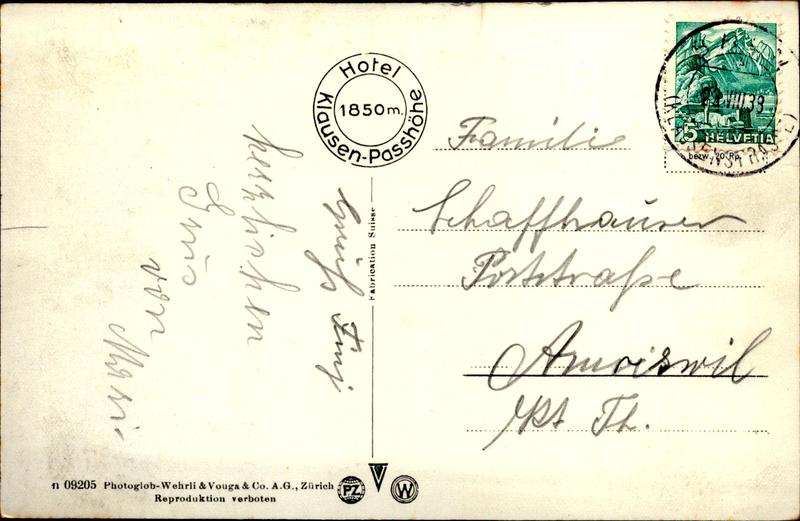 Hotel
Klausen-Passhöhe
1850 m.
HELVETIA
5
bezw. 20 Rp.
VIII.39
Familie
Schaffhauser
Poststraße
Amriswil
Kt Th.
herzlichen
Grus
von
Mari
Gruß
Fabrication Suisse
n 09205 Photoglob-Wehrli & Vouga & Co. A.G., Zürich
Reproduktion verboten
PZ
W